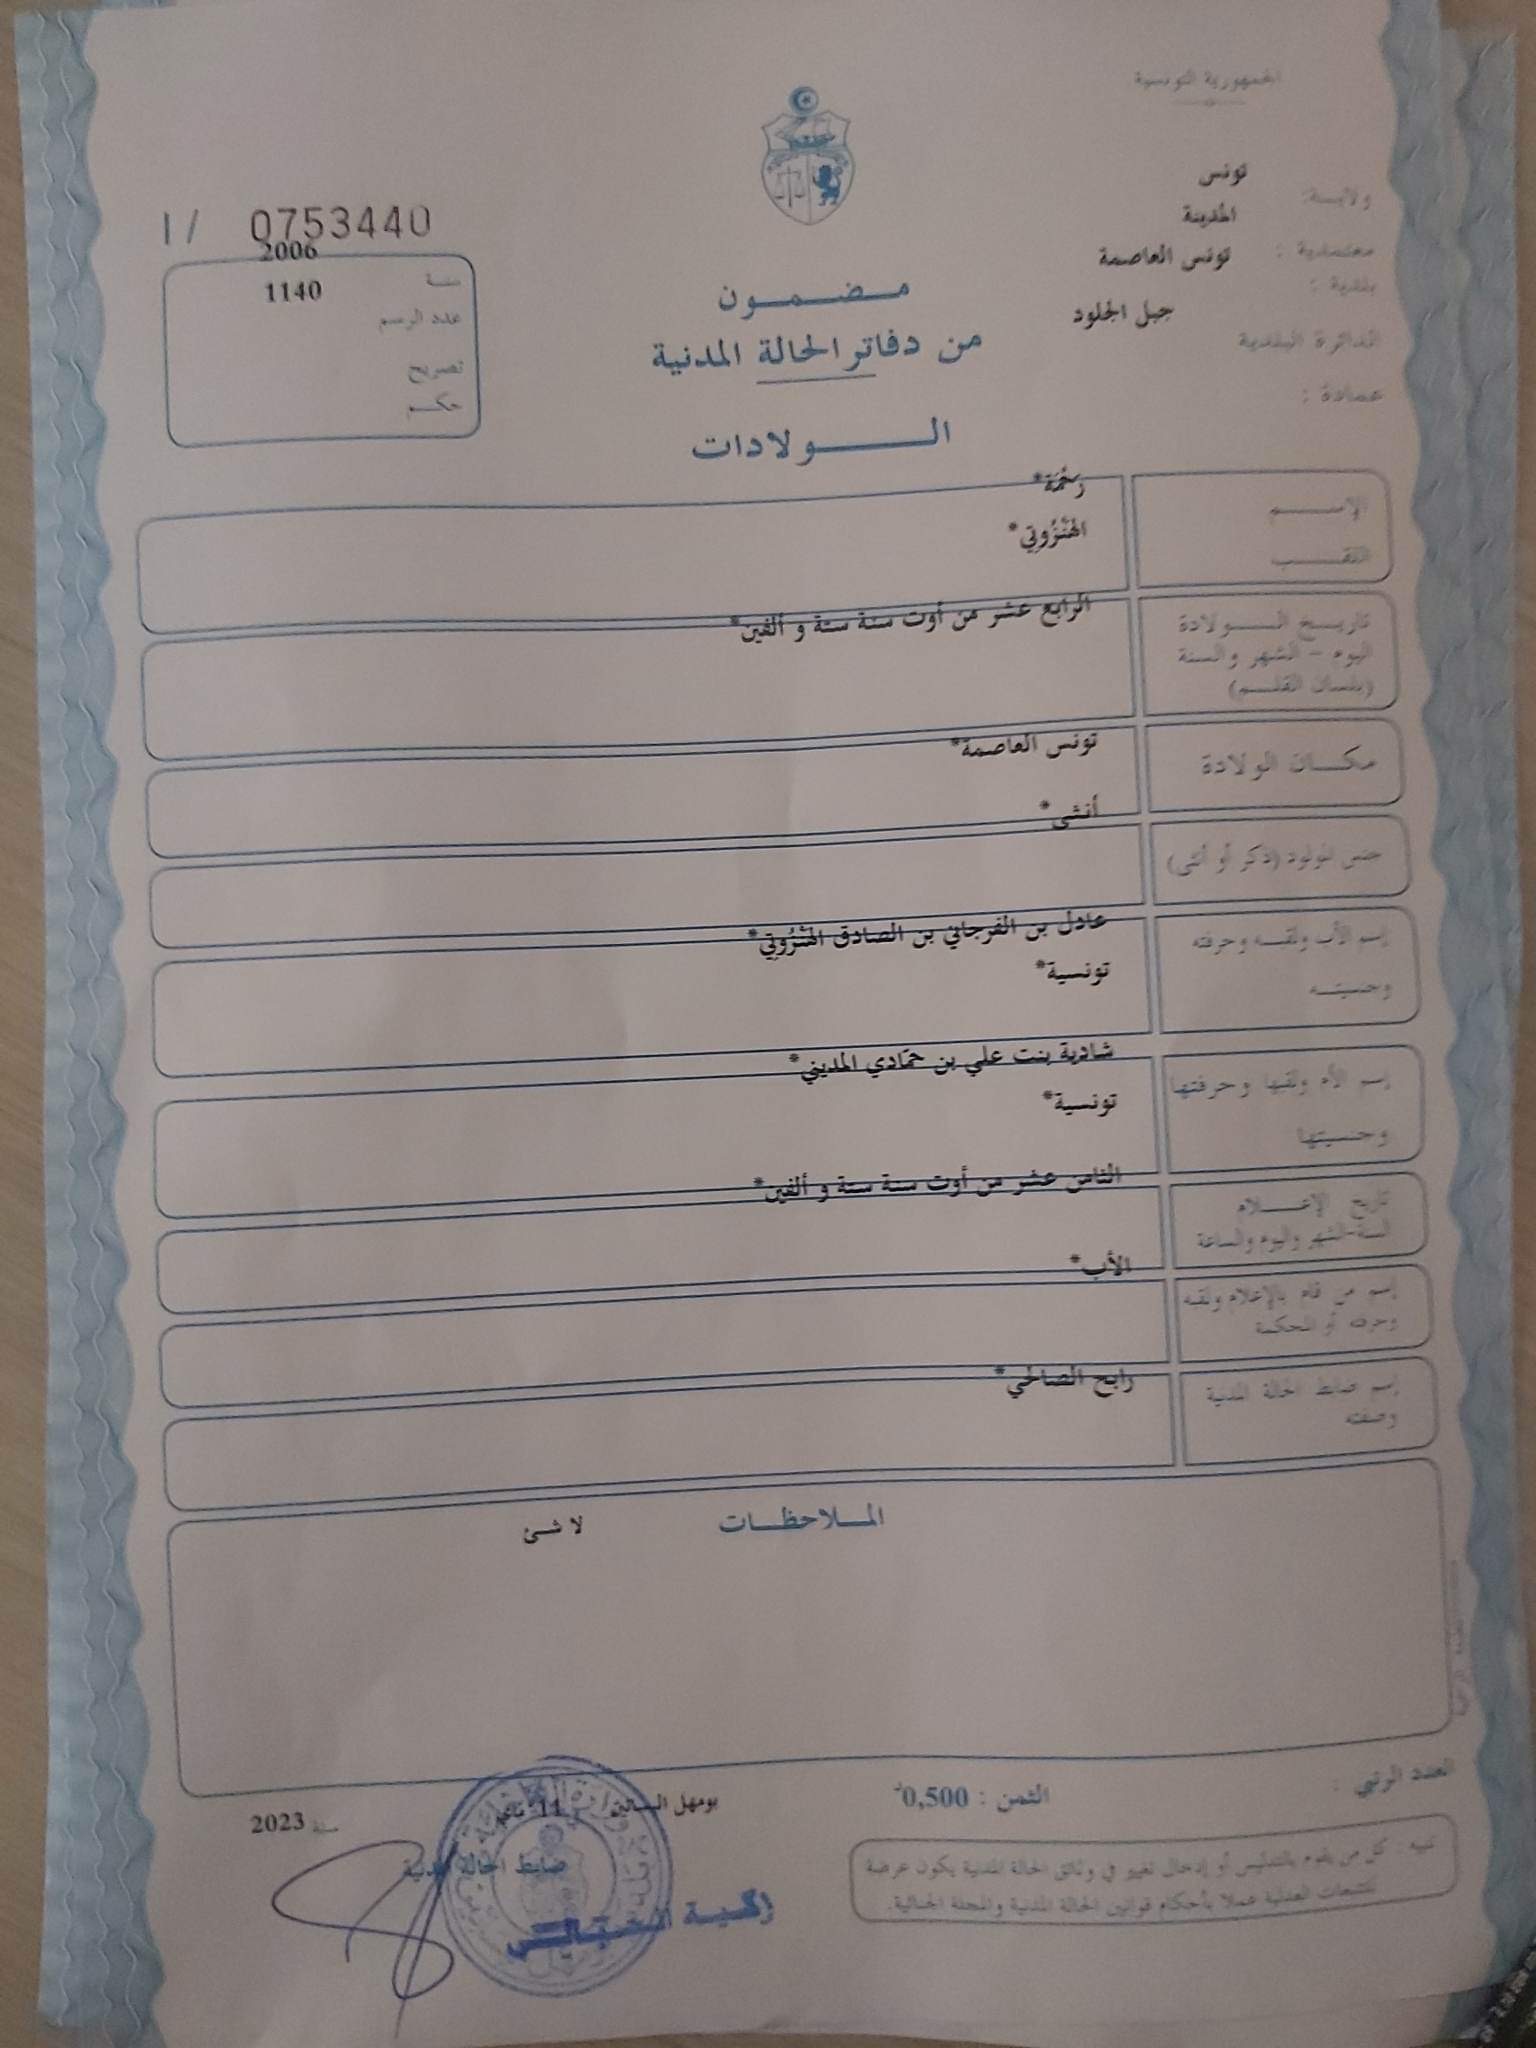 الجمهورية التونسية
ولايــة: تونس
معتمدية : المدينة
بلدية : تونس العاصمة
الدائرة البلدية جبل الجلود
عمادة :
I/ 0753440
سنة 2006
عدد الرسم 1140
تصريح
حكم
مضمون
من دفاتر الحالة المدنية
الولادات
الإسم رَحْمَة*
اللقب الهَنْزُوتِي*
تاريخ الولادة الرابع عشر من أوت سنة ستة و ألفين*
اليوم - الشهر والسنة
(بلسان القلم)
مكان الولادة تونس العاصمة*
جنس المولود (ذكر أو أنثى) أنثى*
إسم الأب ولقبه وحرفته عادل بن الفرجاني بن الصادق الهَنْزُوتِي*
وجنسيته تونسية*
إسم الأم ولقبها وحرفتها شادية بنت علي بن حمّادي المديني*
وجنسيتها تونسية*
تاريخ الإعلام الثامن عشر من أوت سنة ستة و ألفين*
السنة-الشهر واليوم والساعة
إسم من قام بالإعلام ولقبه الأب*
وحرفته أو المحكمة
إسم ضابط الحالة المدنية رابح الصالحي*
وصفته
الملاحظات لا شئ
العدد الرتبي :
الثمن : 0,500د
11 سنة 2023
ضابط الحالة المدنية
تنبيه : كل من يقوم بالتدليس أو إدخال تغيير في وثائق الحالة المدنية يكون عرضة
للتتبعات العدلية عملا بأحكام قوانين الحالة المدنية والمجلة الجنائية.